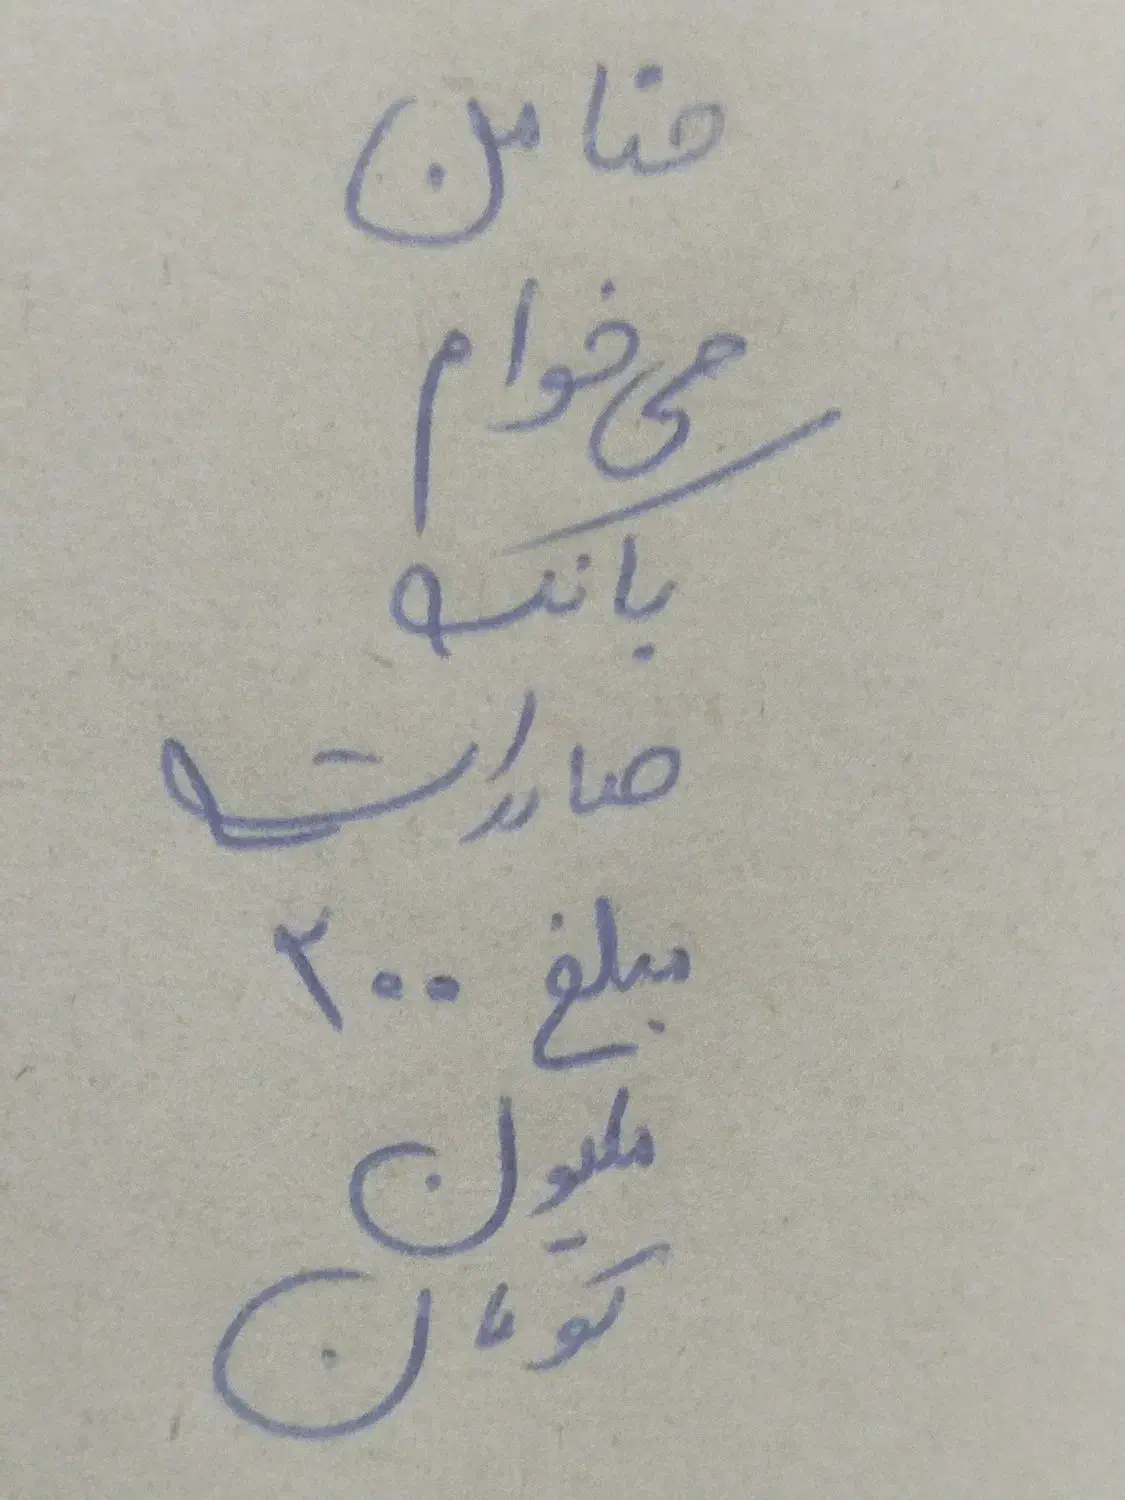 ضامن
می خوام
بانک
صادرات
مبلغ ۲۰۰
ملیون
تومان